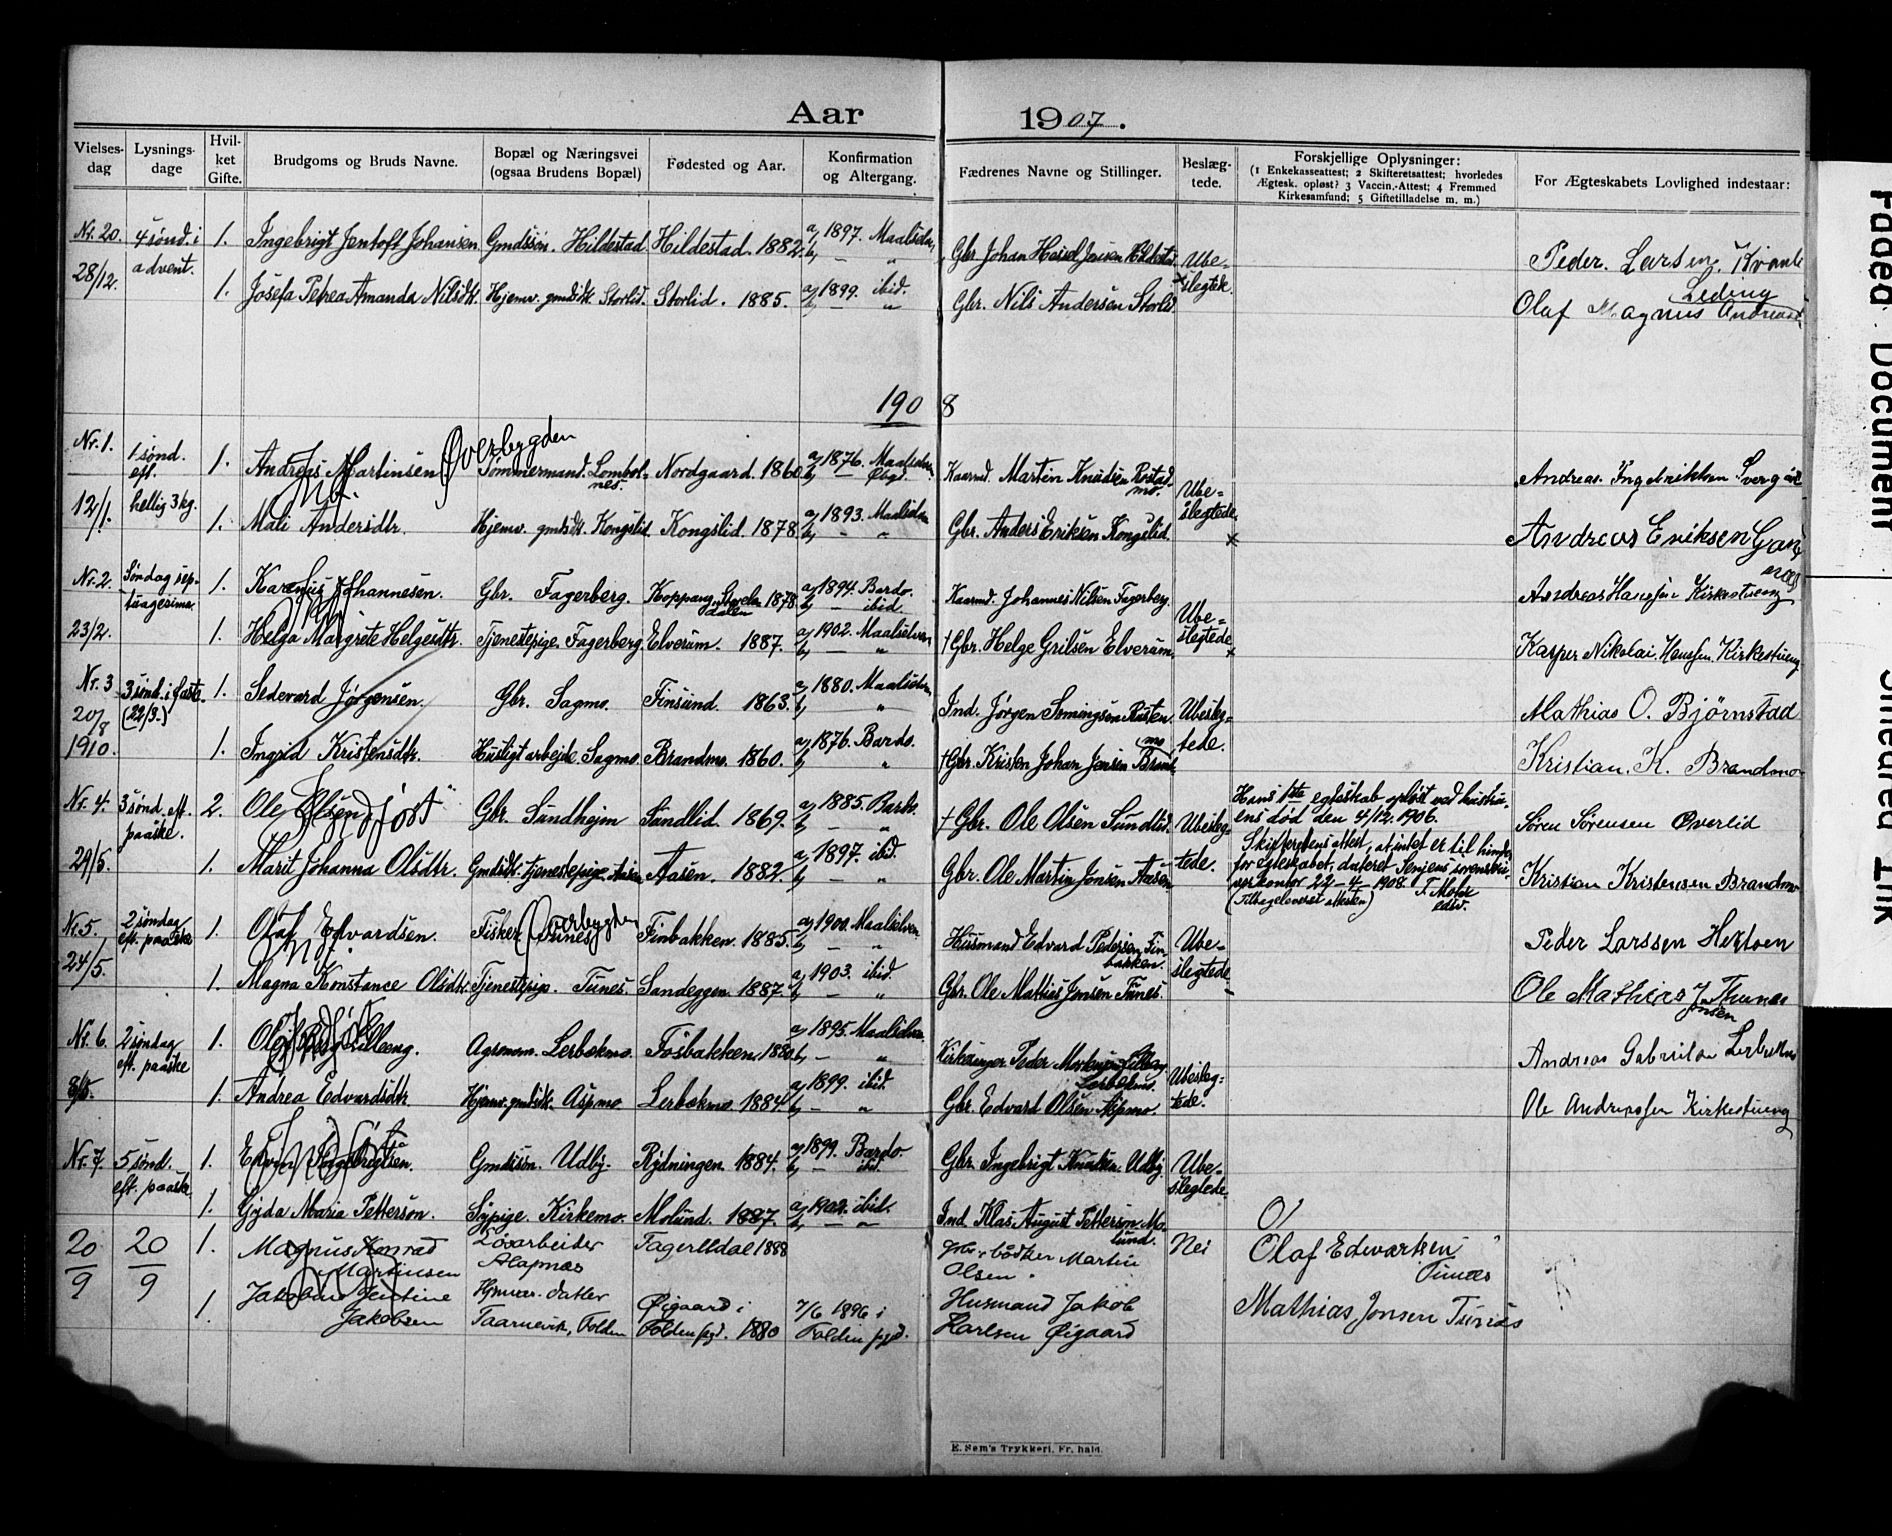 Aar 1907.
Vielses-dag | Lysnings-dage | Hvil-ket Gifte. | Brudgoms og Bruds Navne. | Bopæl og Næringsvei (ogsaa Brudens Bopæl) | Fødested og Aar. | Konfirmation og Altergang. | Fædrenes Navne og Stillinger. | Beslæg-tede. | Forskjellige Oplysninger: (1 Enkekasseattest; 2 Skifteretsattest; hvorledes Ægtesk. opløst? 3 Vaccin.-Attest; 4 Fremmed Kirkesamfund; 5 Giftetilladelse m. m.) | For Ægteskabets Lovlighed indestaar:
Nr. 20. 4 sønd. i advent. 1. Ingebrigt Jentoft Johansen Gmdssøn. Hildestad Hildestad. 1882. a, 1897. Maalselv. b, — „ Gbr. Johan Hassel Jensen Ube= Peder. Larsen. Kvanli
28/12. 1. Josefa Petrea Amanda Nilsdtr. Hjemv. gmdsdtr. Storlid. Storlid. 1885. a, 1899. ibid. b, — „ Gbr. Nils Andersen Storlid. slegtede. Olaf Magnus Andreas
1908
Nr. 1. 1 sønd. eft. 1. Andreas Martinsen Øverbygden Tømmermand. Lombolnes. Nordgaard. 1860 a, 1876. Maalselv. b, — Øbgd. Kaarmd. Martin Knudsen Rostadmo. Ube= Andreas. Ingebriktsen
12/1. hellig 3 kg. 1. Mali Andersdtr. Hjemv. gmdsdtr. Kongslid. Kongslid. 1878 a, 1893. Maalselv. b, — „ Gbr. Anders Eriksen Kongslid. slegtede. Andreas Eriksen
Nr. 2. Søndag septuagesima. 1. Johannesen. Gbr. Fagerberg. Koppang, Storelvdalen 1878 a, 1894. Bardo. b, — ibid. Kaarmd. Johannes Nilsen Fagerberg. Ube= Andreas Hansen Kirkestueng
23/2. 1. Helga Margrete Helgesdtr. Tjenestepige. Fagerberg. Elverum. 1887. a, 1902. Maalselven. b, — „ † Gbr. Helge Grilsen Elverum. slegtede Kasper Nikolai. Hansen. Kirkestueng
Nr. 3 3 sønd. i faste. (22/3.) 1. Sedevard Jørgensen. Gbr. Sagmo. Finsund. 1863. a, 1880. Maalselv. b, „ Ind. Jørgen Ubesleg= Mathias O. Bjørnstad
20/8 1910. 1. Ingrid Kristensdtr. Husligt arbejde. Sagmo. Brandmo. 1860. a, 1876. Bardo. b, „ † Gbr. Kristen Johan Jensen Brandmo tede. Kristian. K. Brandmo
Nr. 4. 3 sønd. eft. paaske. 2. Ole Olsen Gbr. Sundheim Sundlid. 1869. a, 1885. Bardo. b, — „ † Gbr. Ole Olsen Sundlid. Ubesleg= Hans 1ste egteskab opløst ved hustruens død den 4/12. 1906. Søren Sørensen Øverlid
29/5. 1. Marit Johanna Olsdtr. Gmdsdtr. tjenestepige. Aasen Aasen. 1882. a, 1897. ibid. b, — „ Gbr. Ole Martin Jensen Aasen tede. Skifteretens attest, at intet er til hinder for egteskabet, dateret Senjens sorenskriverkontor 22-4-1908. (Tilbageleveret attesten) Kristian Kristensen Brandmo
Nr. 5. 2 søndag eft. paaske 1. Olaf Edvardsen. Fisker Tunes Øverbygden Finbakken. 1885. a, 1900. Maalselven. b, — „ Husmand Edvard Pedersen Finbakken. Ube= Peder Larssen Hektoen
24/5. 1. Magna Konstance Olsdtr. Tjenestepige. Tunes. Sandeggen. 1887. a, 1903. ibid. b, — „ Gbr. Ole Mathias Jensen Tunes. slegtede Ole Mathias Jensen Thunes
Nr. 6. 2 søndag eft. paaske 1. Lilleeng. Agronom. Lerbekmo. Fosbakken 1880. a, 1895. Maalselven. b, — „ Kirkesanger Peder Ubesleg= Andreas
8/5. 1. Andrea Edvardsdtr. Hjemv. gmdsdtr. Aspmo Lerbekmo. 1884 a, 1899. ibid. b, — „ Gbr. Edvard Olsen Aspmo. tede. Ole Andreassen Kirkestueng
Nr. 7. 5 sønd. eft. paaske 1. Edvin Ingebrigtsen. Gmdssøn. Udby. Rydningen. 1884. a, 1899. Bardo. b, — ibid. Gbr. Ingebrigt Knudsen. Udby. Ube=
1. Gyda Maria Petterson. Sypige. Kirkemo. Molund. 1887. a, 1902. ibid. b, — „ Ind. Klas August Petterson Molund. slegtede.
20/9 20/9 1. Magnus Konrad Martinsen Løsarbeider Alapmoe Fagerlidal 1888 Gbr. bødker Martin Olsen. Nei Olaf Edwartsen Tunæs
1. Jakobine Jentine Jakobsen datter Taarnevik, Folden Øigaard i Folden pgd. 1880 7/6 1896 i Folden pgd. Husmand Jakob Karlsen Øigaard Mathias Jonsen Tunæs
E. Sem's Trykkeri, Fr.hald.
Faded Document
Smeared Ink